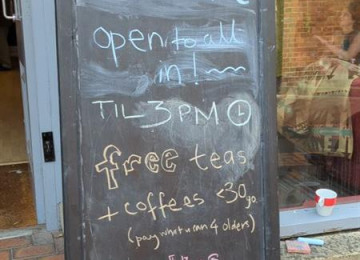 open to all
in!
TIL 3PM
free teas
+ coffees <30yo.
(pay what u can 4 olders)